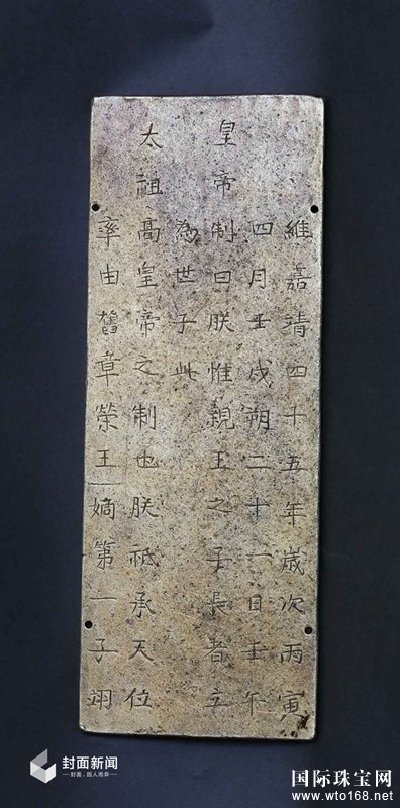 維嘉靖四十五年歲次丙寅
四月壬戌朔二十一日壬午
皇帝制曰朕惟親王之子長者立
為世子此
太祖高皇帝之制也朕祗承天位
率由舊章榮王嫡第一子翊
封面新闻
封面,因人而异
国际珠宝网
www.wto168.net